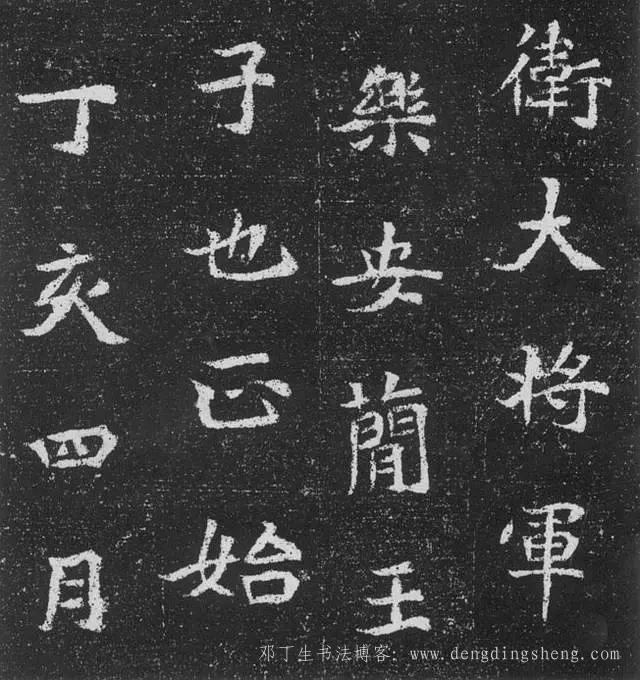 衛大将軍
樂安蕳王
子也正始
丁亥四月
邓丁生书法博客：www.dengdingsheng.com